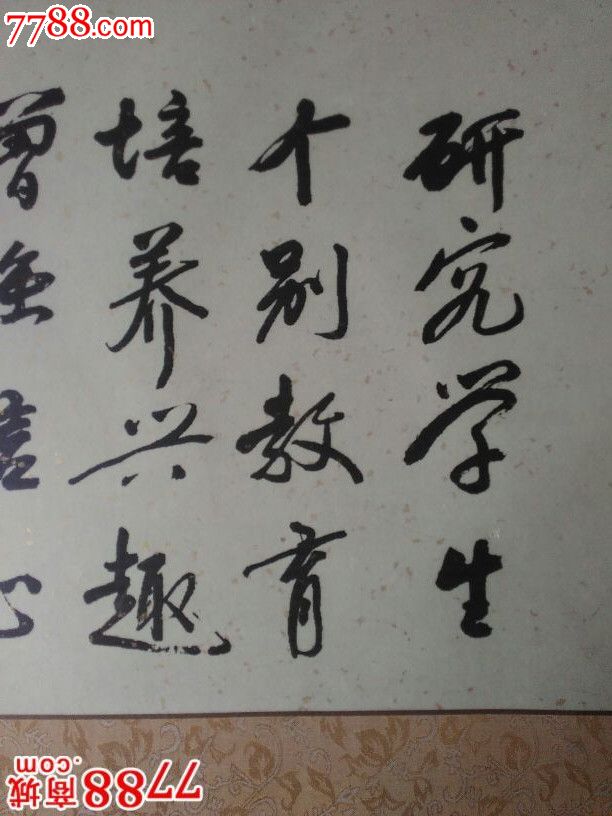 7788.com
研究学生
个别教育
培养兴趣
增强信心
7788商城